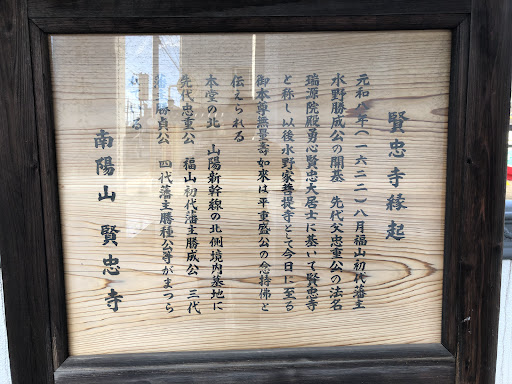 賢忠寺縁起
元和八年(一六二二)八月福山初代藩主
水野勝成公の開基 先代父忠重公の法名
瑞源院殿勇心賢忠大居士に基いて賢忠寺
と称し以後水野家菩提寺とて今日に至る
御本尊無量壽如来は平重盛公の念持佛と
伝えられる
本堂の北 山陽新幹線の北側境内墓地に
先代忠重公 福山初代藩主勝成公 三代
勝貞公 四代藩主勝種公等がまつら
る
南陽山 賢忠寺